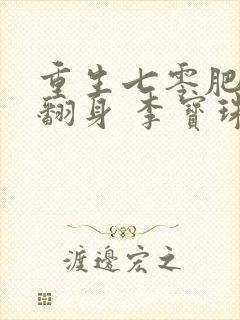 重生七零肥
翻身 李寶珠
渡邊宏之